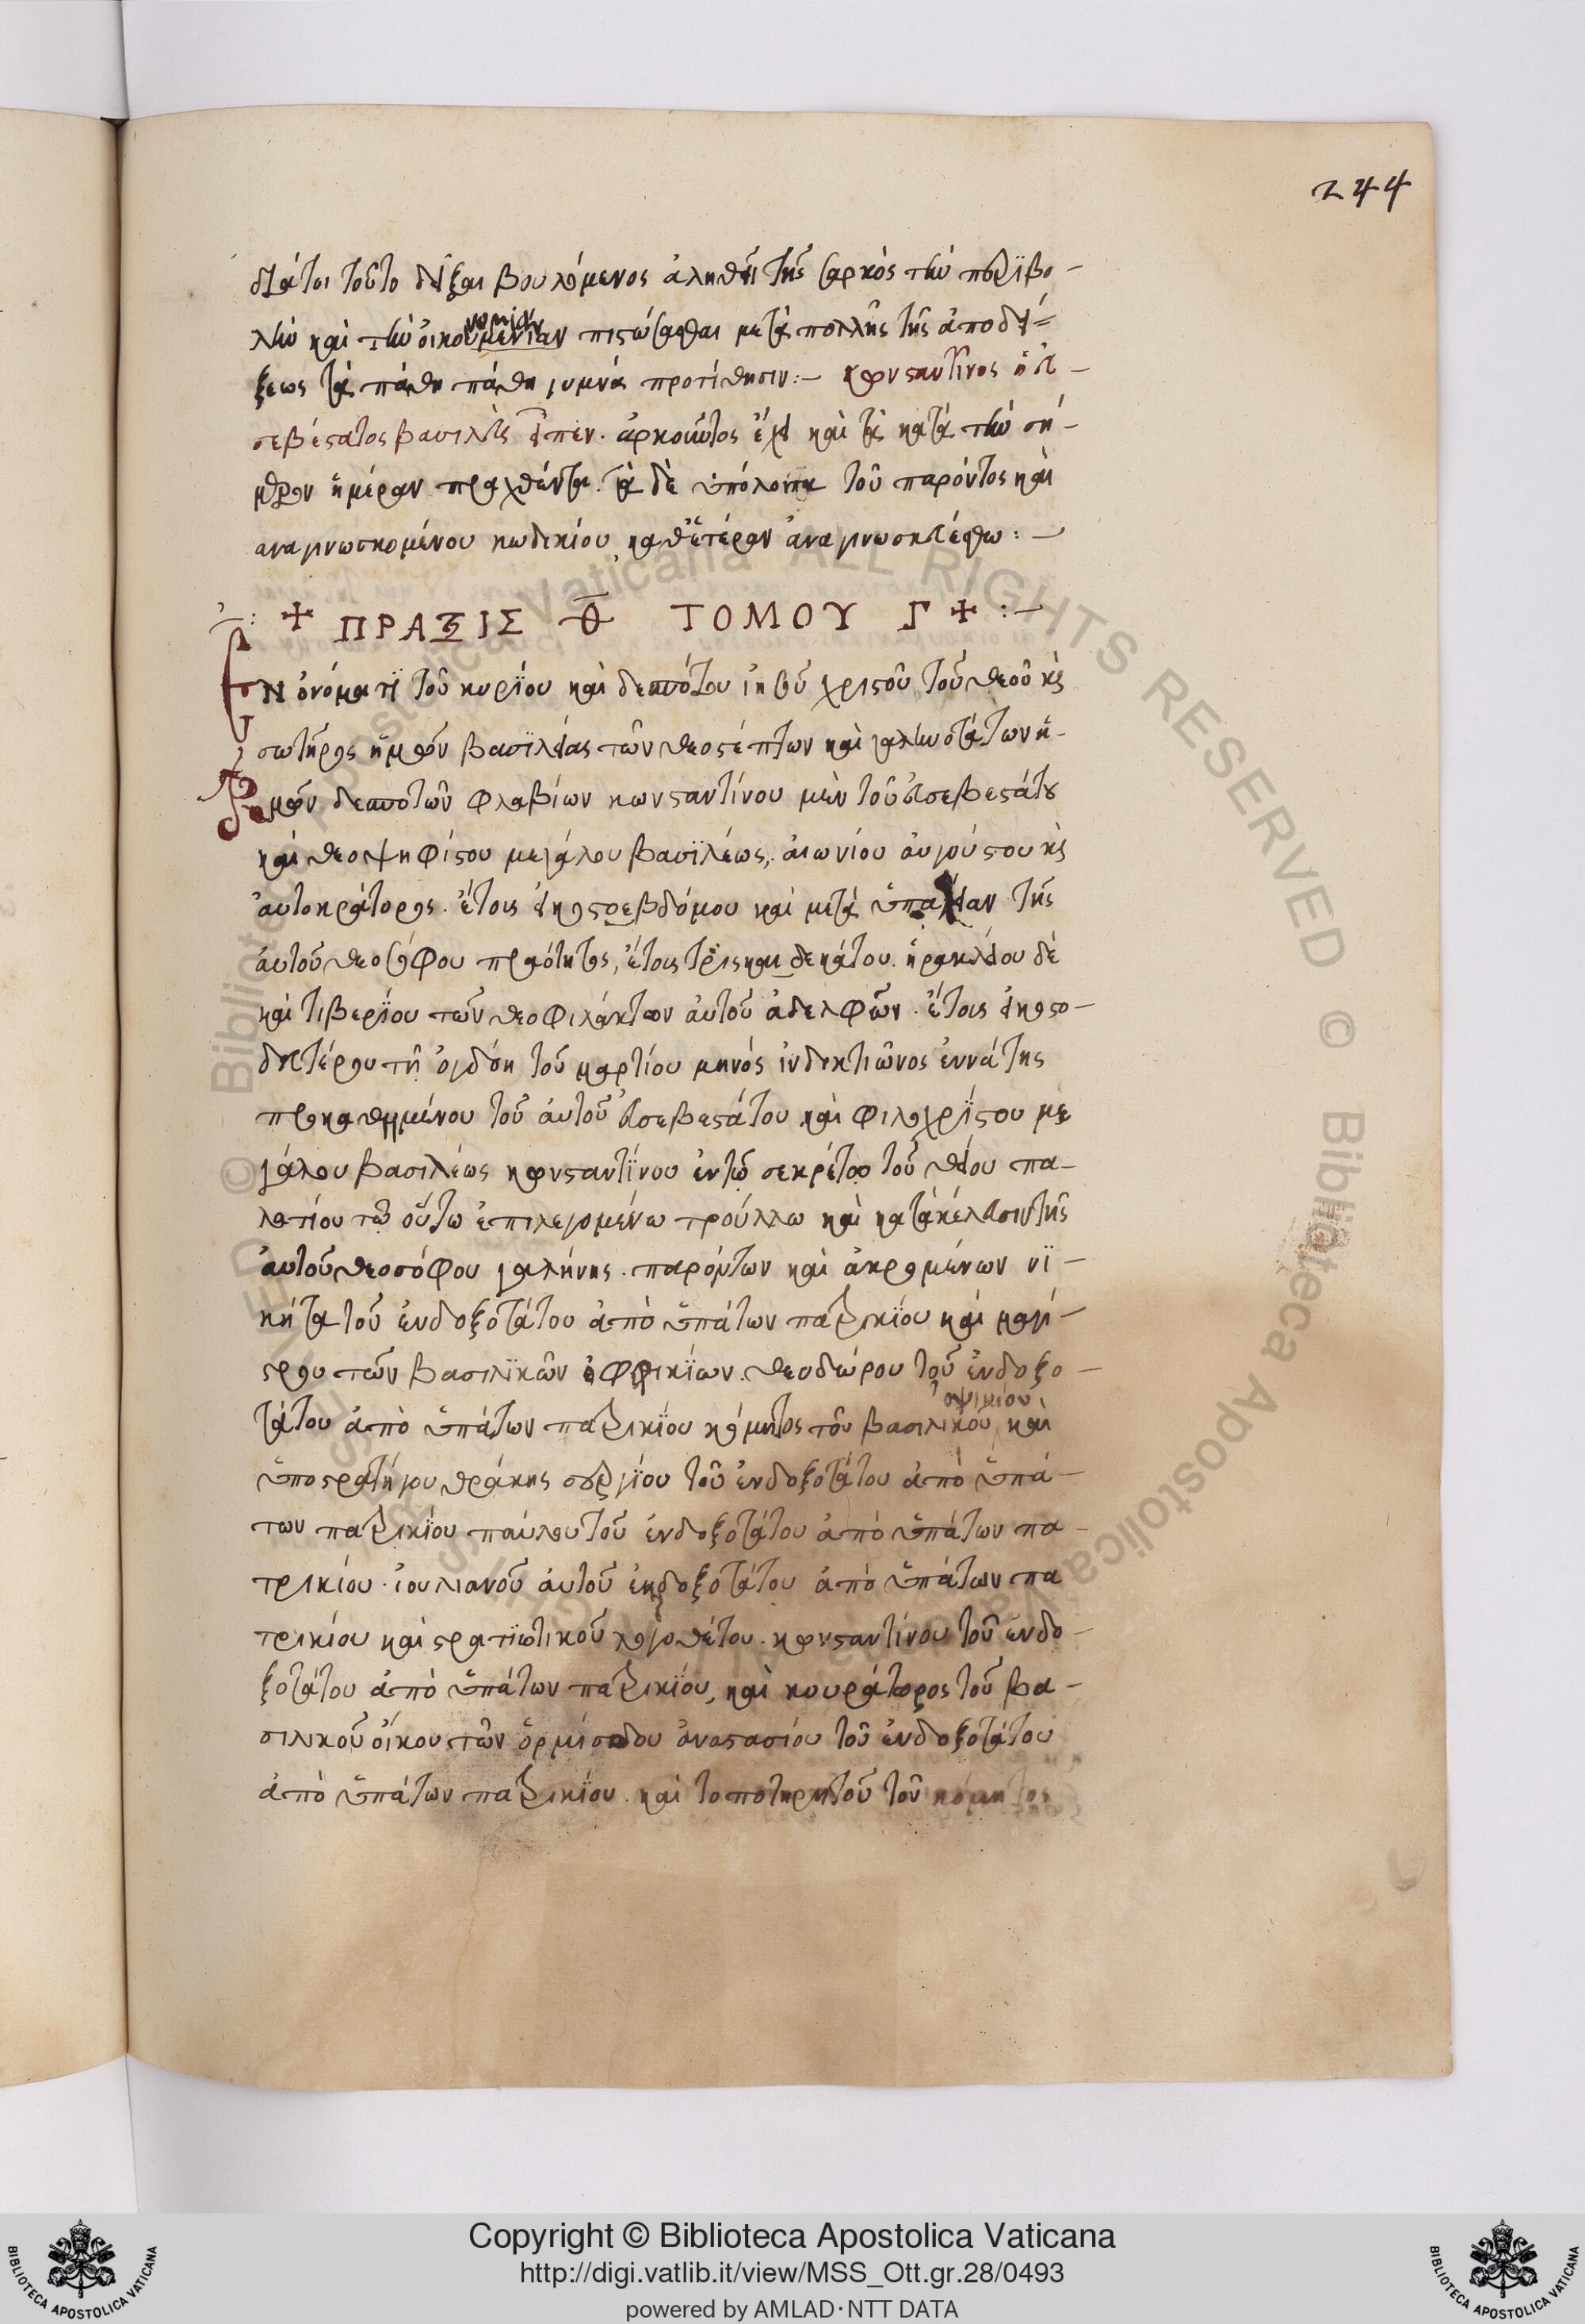 244
διάτοι τοῦτο δεῖξαι βουλόμενος ἀληθῆ τῆς σαρκὸς τὴν περιβο-
λὴν καὶ τὴν οἰκουμενίαν πιστώσασθαι μετὰ πολλῆς τῆς ἀποδεί=
νομίαν
ξεως τὰ πάθη πάθη γυμνὰ προτίθησιν:– κωνσταντῖνος ὁ εὐ-
σεβέστατος βασιλεὺς εἶπεν. ἀρκούντος ἔχει καὶ τὰ κατὰ τὴν σή-
μερον ἡμέραν πραχθέντα. τὰ δὲ ὑπόλοιπα τοῦ παρόντος καὶ
αναγινωσκομένου κωδικίου καθ' ἑτέραν ἀναγινωσκέσθω:–
✢ ΠΡΑΞΙΣ Θ ΤΟΜΟΥ Γ ✢ :–
Ἐν ὀνόματι τοῦ κυρίου καὶ δεσπότου ἰησοῦ χριστοῦ τοῦ θεοῦ κς
σωτῆρος ἡμῶν βασιλείας τῶν θεοσέπτων καὶ γαληνοτάτων ἡ-
μῶν δεσποτῶν φλαβίων κωνσταντίνου μὲν τοῦ εὐσεβεστάτου
καὶ θεοψηφίστου μεγάλου βασιλέως, αἰωνίου αὐγούστου κς
αὐτοκράτορος. ἔτους εἰκοστοεβδόμου καὶ μετὰ ὑπατείαν τῆς
αὐτοῦ θεοσόφου πραότητος, ἔτους τρισκαιδεκάτου. ἡρακλείου δὲ
καὶ τιβερίου τῶν θεοφιλάκτων αὐτοῦ ἀδελφῶν. ἔτους εἰκοστο-
δευτέρου τῇ ὀγδόη τοῦ μαρτίου μηνός ἰνδικτιῶνος ἐννάτης
προκαθημένου τοῦ αὐτοῦ εὐσεβεστάτου καὶ φιλοχρίστου με
γάλου βασιλέως κωνσταντίνου ἐν τῷ σεκρέτω τοῦ θείου πα-
λατίου τῶ οὕτω ἐπιλεγομένω τρούλλω καὶ κατὰ κέλευσιν τῆς
αὐτοῦ θεοσόφου γαλήνης. παρόντων καὶ ἀκροωμένων νι-
κήτα τοῦ ἐνδοξοτάτου ἀπὸ ὑπάτων πατρικίου καὶ μαγί-
στρου τῶν βασιλικῶν ὀφφικίων. θεοδώρου τοῦ ἐνδοξο-
ὀψικίου
τάτου ἀπὸ ὑπάτων πατρικίου κόμητος τοῦ βασιλικοῦ, καὶ
ὑποστρατήγου θράκης σεργίου τοῦ ἐνδοξοτάτου ἀπὸ ὑπά-
των πατρικίου παύλου τοῦ ἐνδοξοτάτου ἀπὸ ὑπάτων πα-
τρικίου. ἰουλιανοῦ αὐτοῦ ἐνδοξοτάτου ἀπὸ ὑπάτων πα
τρικίου καὶ στρατιωτικοῦ λογοθέτου. κωνσταντίνου τοῦ ἐνδο-
ξοτάτου ἀπὸ ὑπάτων πατρικίου, καὶ κουράτωρος τοῦ βα-
σιλικοῦ οἴκου τῶν ὁρμίσδου ἀναστασίου τοῦ ἐνδοξοτάτου
ἀπὸ ὑπάτων πατρικίου. καὶ τοποτηρητοῦ τοῦ κόμητος
© Biblioteca Apostolica Vaticana ALL RIGHTS RESERVED © Biblioteca Apostolica Vaticana
BIBLIOTECA APOSTOLICA VATICANA
Copyright © Biblioteca Apostolica Vaticana
http://digi.vatlib.it/view/MSS_Ott.gr.28/0493
powered by AMLAD·NTT DATA
BIBLIOTECA APOSTOLICA VATICANA